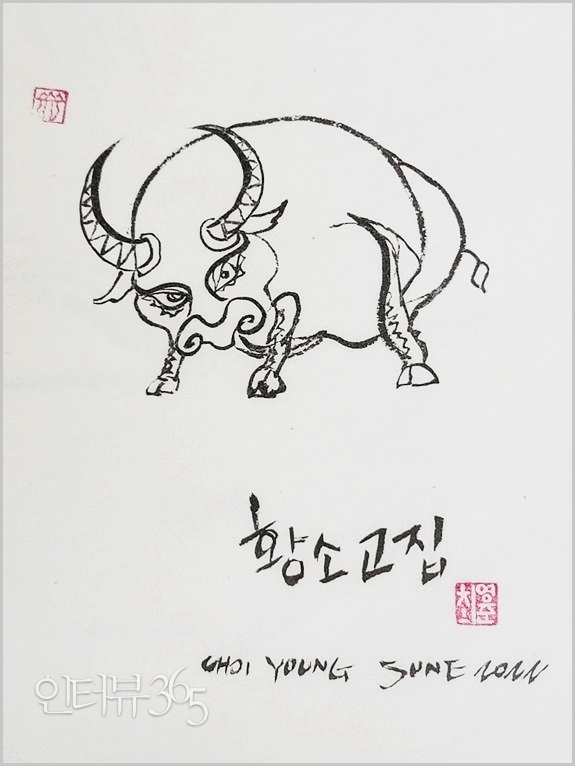 황소고집
영준
최
CHOI YOUNG JUNE 2022
인터뷰365